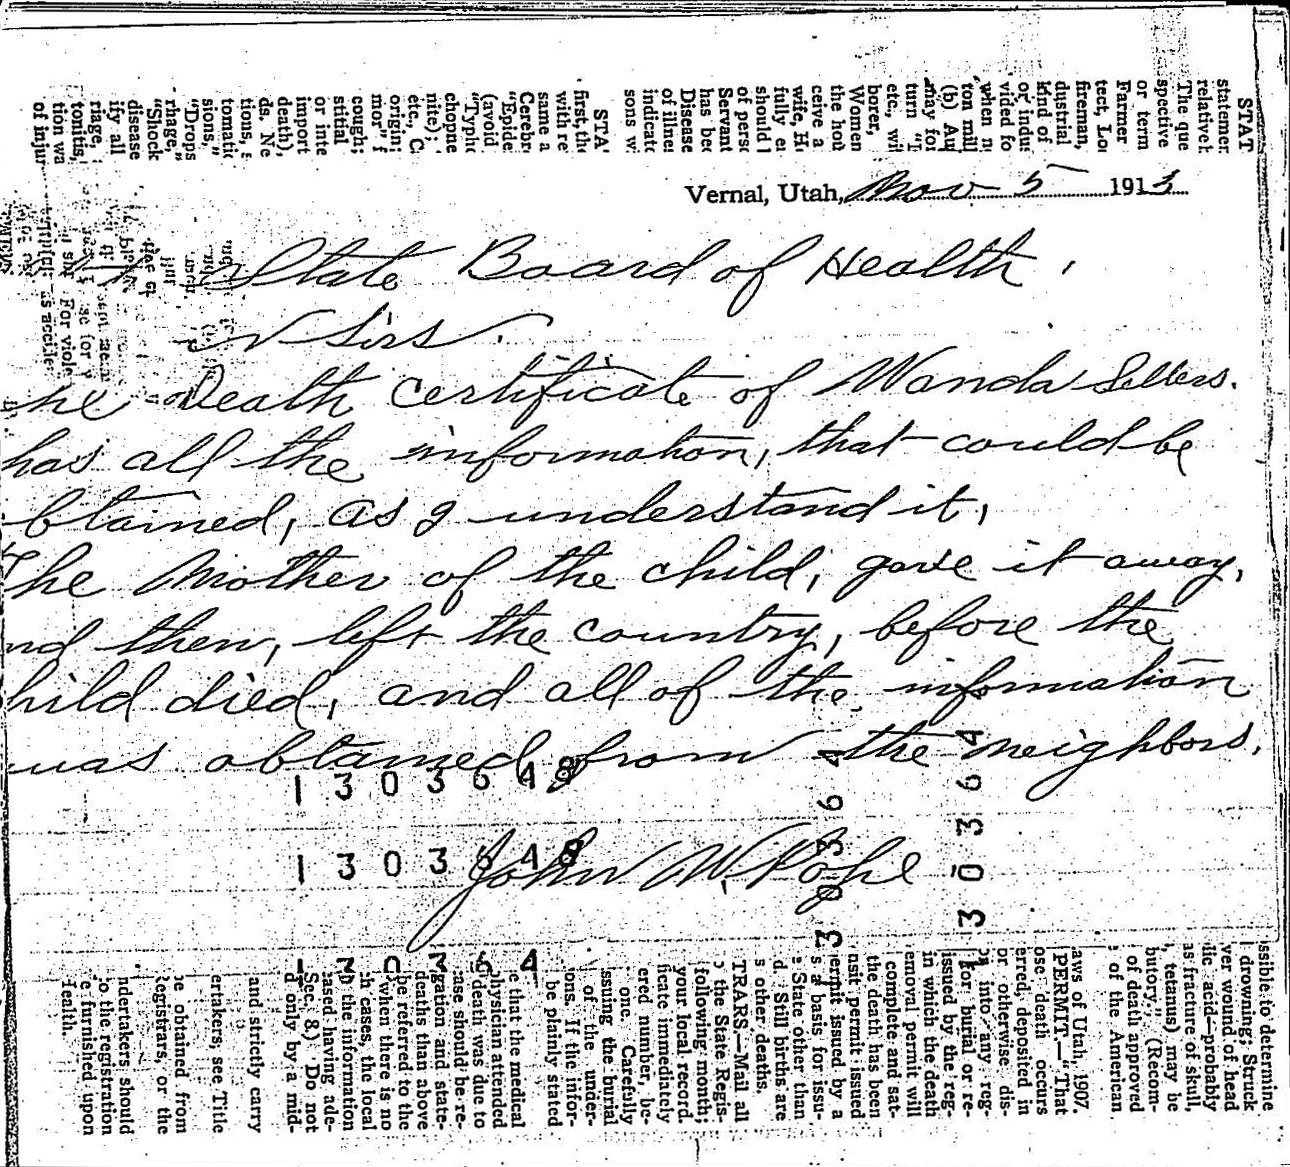 Vernal, Utah, Nov 5 1913
State Board of Health,
Sirs.
he Death certificate of Wanda Sellers.
has all the information, that could be
btained, as I understand it,
The Mother of the child, gave it away,
nd then, left the country, before the
hild died, and all of the information
was obtained from the neighbors.
John W. Pope
1303648
1303648
STAT
statemen
relativel
The que
spective
or term
Farmer
tect, Lo
fireman,
dustrial
kind of
or indu
vided fo
when n
ton mill
(b) Au
may for
turn
etc., wi
borer,
Women
the hou
ceive a
wife, H
fully e
should
of pers
Servant
has bee
Disease
of illnes
indicat
sons w
STA
first, th
with re
same a
Cerebr
"Epide
(avoid
"Typho
chopne
nite);
etc., C
origin;
mor" f
cough;
stitial
or inte
import
death),
ds. Ne
tious,
tomatic
sions,"
"Drops
rhage,"
"Shock
disease
ify all
riage,
tonitis,
tion wa
of injur
ssible to determine
drowning; Struck
ver wound of head
lic acid—probably
as fracture of skull,
, tetanus) may be
butory." (Recom-
of death approved
of the American
aws of Utah, 1907.
PERMIT.—"That
ose death occurs
or otherwise dis-
erred, deposited in
into any reg-
for burial or re-
issued by the reg-
in which the death
emoval permit will
complete and sat-
the death has been
nsit permit issued
s a basis for issu-
ermit issued by a
State other than
d. Still births are
s other deaths.
TRARS.—Mail all
o the State Regis-
following month;
your local record.
ficate immediately
ered number, be-
one. Carefully
ssuing the burial
of the under-
ons. If the infor-
be plainly stated
e that the medical
physician attended
death was due to
case should be re-
gation and state-
deaths than above
be referred to the
when there is no
h cases, the local
the information
ased having ade-
Sec. 8.) Do not
d only by a mid-
and strictly carry
ertakers, see Title
be obtained from
egistrars, or the
ndertakers should
to the registration
e furnished upon
Health.